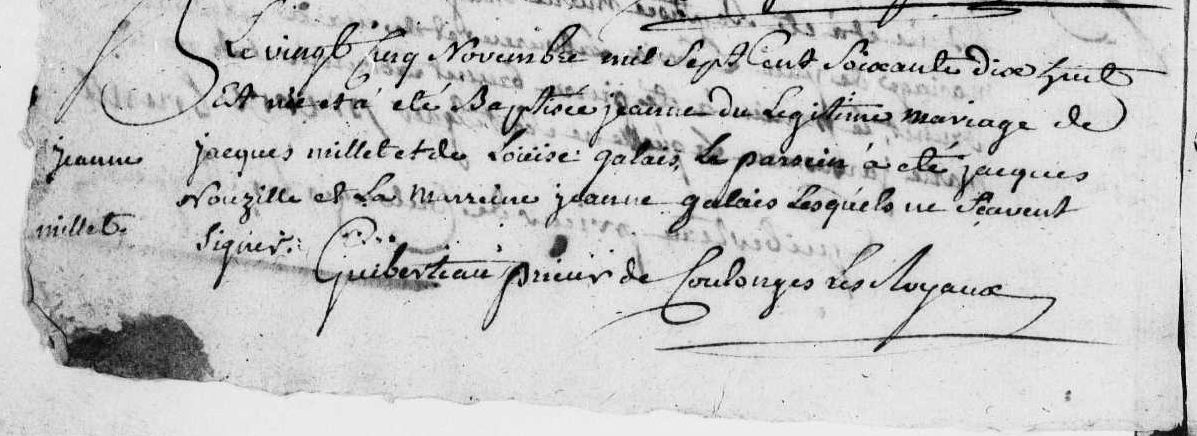 Le vingt Cinq Novembre mil Sept Cent Soixante dix huit
Est née et à eté Baptisée jeanne du Legitime mariage de
jeanne
jacques millet et de Loüise galais, Le parrein à eté jacques
Nouzille et La Marreine jeanne galais Lesquéls ne Sçavent
millet
Signer.
Guiberteau prieur de Coulonges Les Royaux